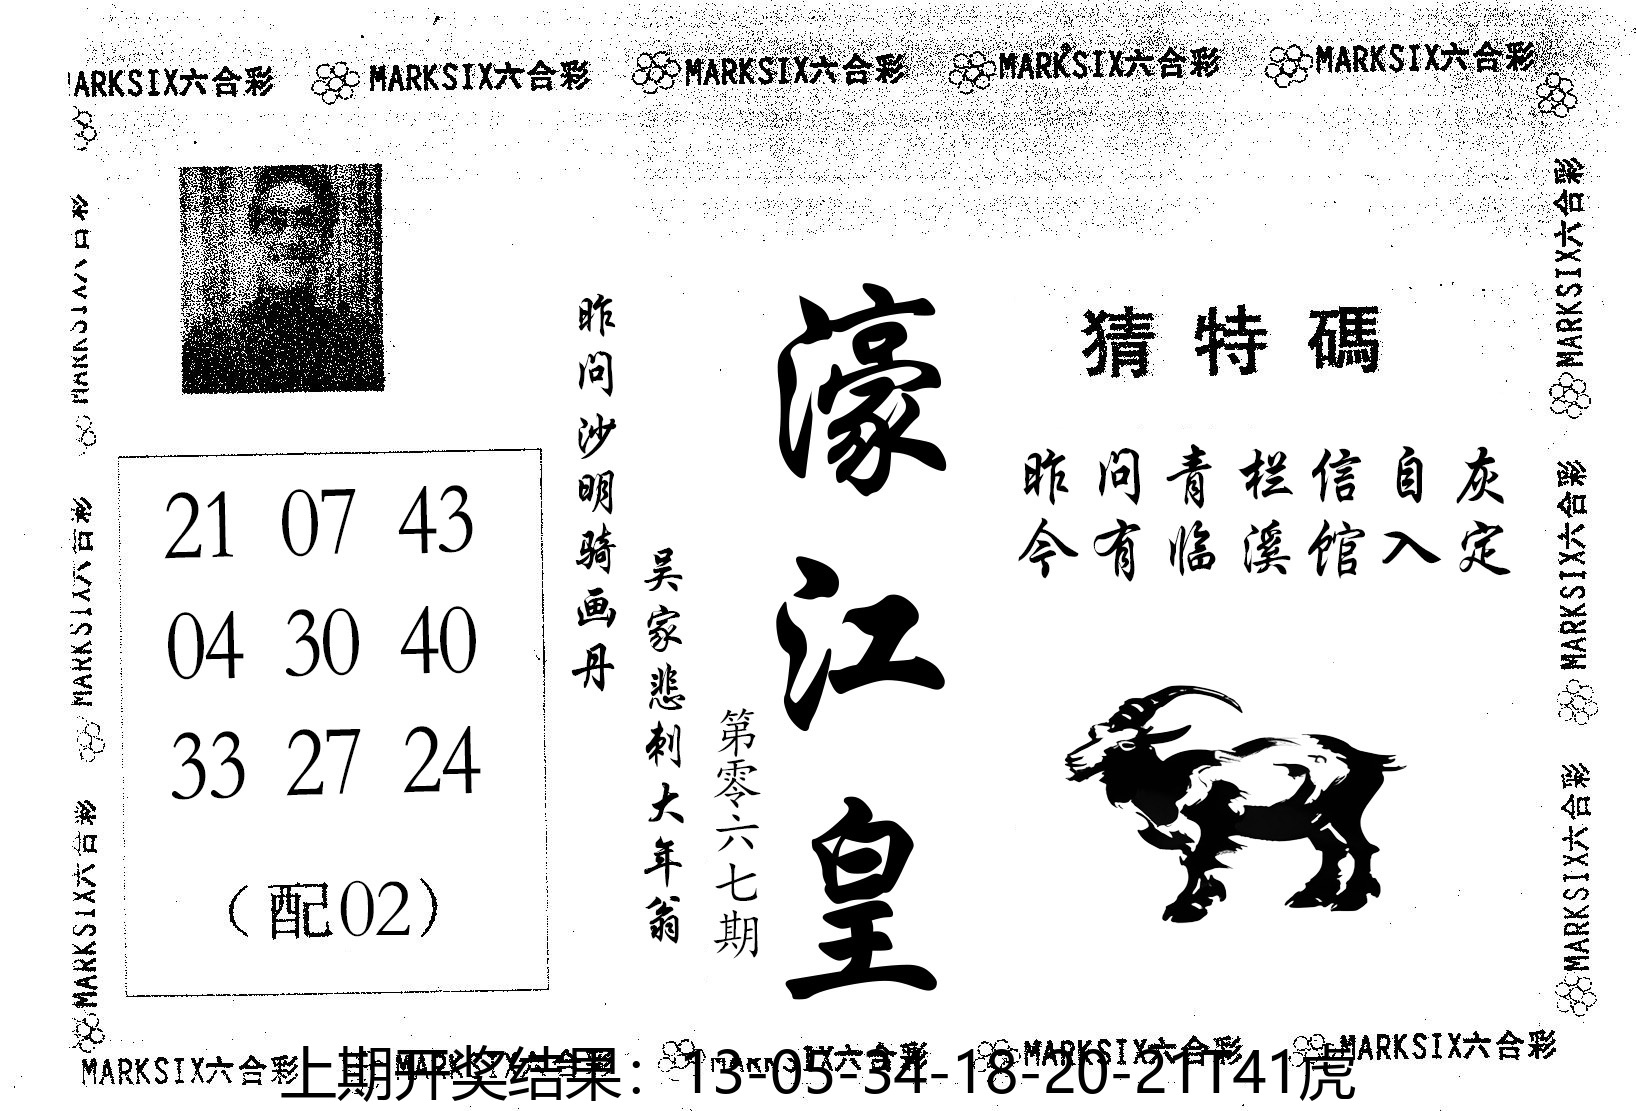 MARKSIX六合彩 MARKSIX六合彩 MARKSIX六合彩 MARKSIX六合彩 MARKSIX六合彩
MARKSIX六合彩
MARKSIX六合彩
MARKSIX六合彩
21 07 43
04 30 40
33 27 24
（配02）
昨问沙明骑画丹
吴家悲刺大年翁
第零六七期
濠江皇
猜特碼
昨问青栏信自灰
今有临溪馆入定
MARKSIX六合彩
MARKSIX六合彩
MARKSIX六合彩
MARKSIX六合彩 MARKSIX六合彩 MARKSIX六合彩 MARKSIX六合彩 MARKSIX六合彩
上期开奖结果：13-05-34-18-20-21T41虎